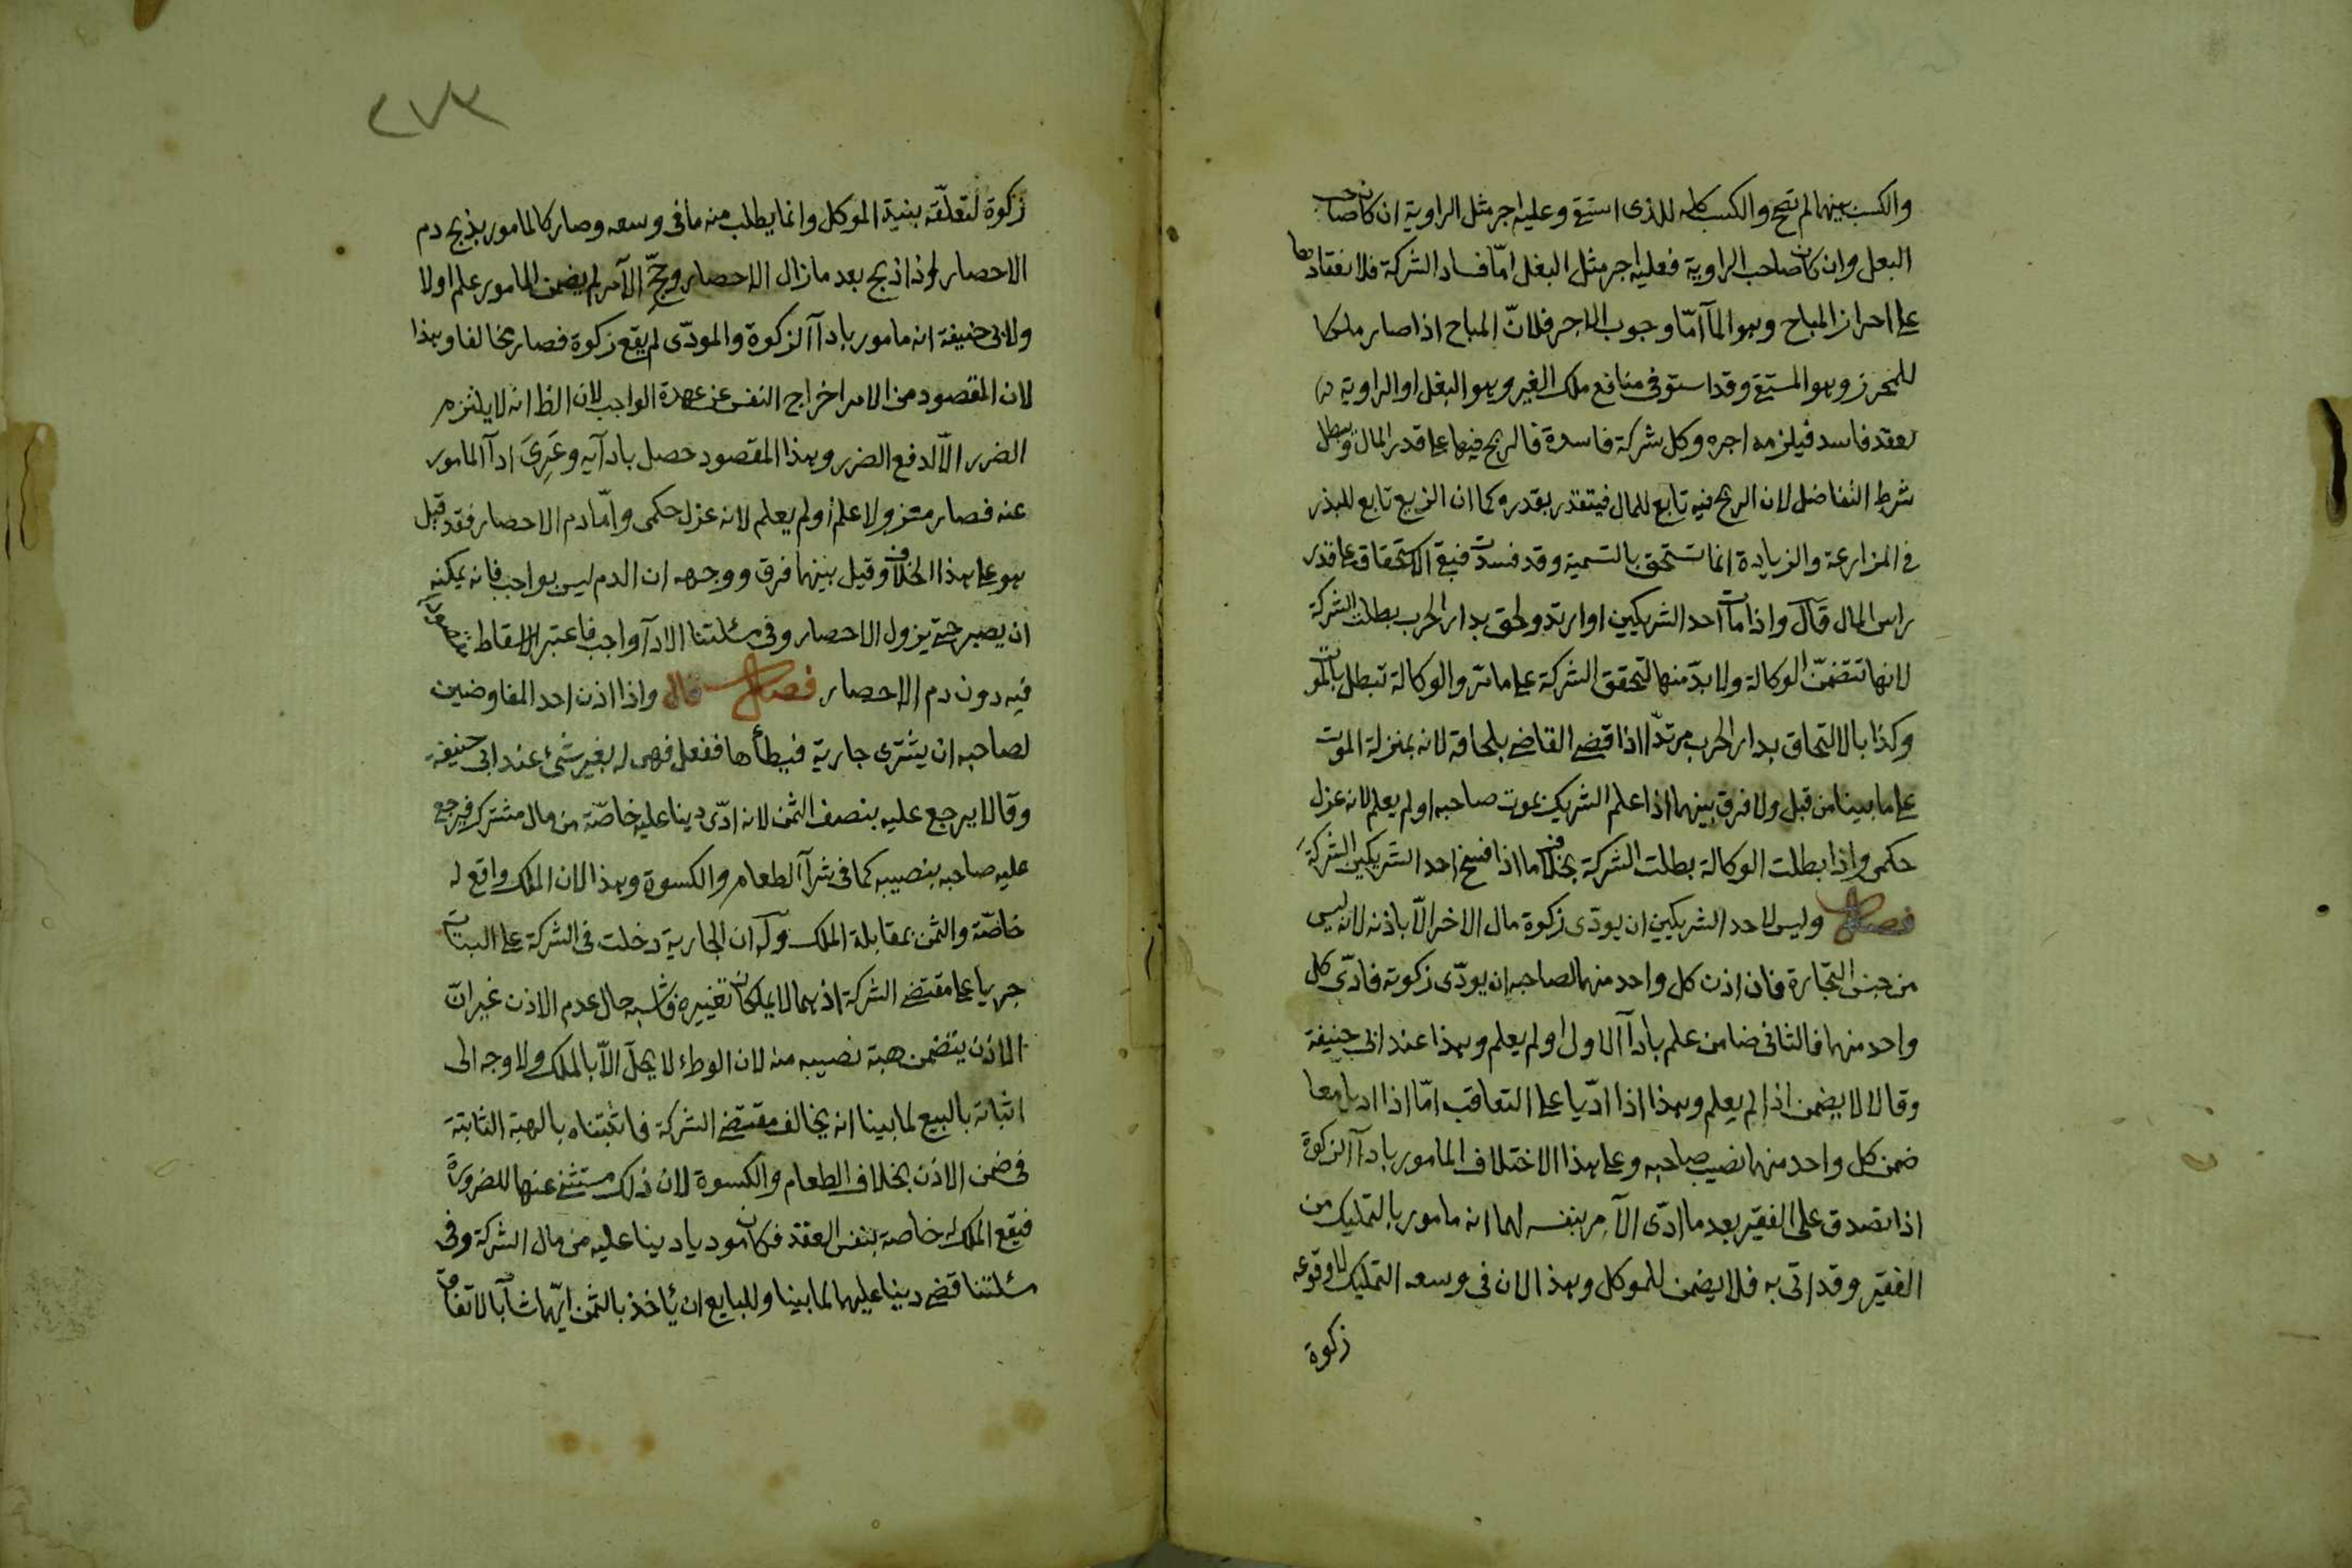 والكسب بينهما لم تصح والكسب كله للذى استقى وعليه اجر مثل الراوية ان كان صاحب
البغل وان كان صاحب الراوية فعليه اجر مثل البغل امّا فساد الشركة فلانعقادها
على احراز المباح وهو المآ امّا وجوب الاجر فلانّ المباح اذا صار ملكا
للمحرز وهو المستقى وقد استوفى منافع ملك الغير وهو البغل او الراوية
بعقد فاسد فيلزمه اجره وكل شركة فاسدة فالربح فيها على قدر المال وبطل
شرط التفاضل لان الربح فيه تابع للمال فيتقدر بقدره كما ان الريع تابع للبذر
فى المزارعة والزيادة انما تستحق بالتسمية وقد فسدت فبقى الاستحقاق على قدر
راس المال قال واذا مات احد الشريكين او ارتد ولحق بدار الحرب بطلت الشركة
لانها تتضمّن الوكالة ولا بدّ منها لتحقق الشركة على ما مرّ والوكالة تبطل بالموت
وكذا بالالتحاق بدار الحرب مرتدّا اذا قضى القاضى بلحاقه لانه بمنزلة الموت
على ما بينا من قبل ولا فرق بينهما اذا علم الشريك بموت صاحبه او لم يعلم لانه عزل
حكمى واذا بطلت الوكالة بطلت الشركة بخلاف ما اذا فسخ احد الشريكين الشركة
فصل وليس لاحد الشريكين ان يودّى زكوة مال الاخر الّا باذنه لانه ليس
من جنس التجارة فان اذن كل واحد منهما لصاحبه ان يودّى زكوته فادّى كل
واحد منهما فالثانى ضامن علم بادآ الاول او لم يعلم وهذا عند ابى حنيفة
وقالا لا يضمن اذا لم يعلم وهذا اذا ادّيا على التعاقب امّا اذا اديا معا
ضمن كل واحد منهما نصيب صاحبه وعلى هذا الاختلاف المامور بادآ الزكوة
اذا تصدق على الفقير بعد ما ادّى الآمر بنفسه لهما انه مامور بالتمليك من
الفقير وقد اتى به فلا يضمن للموكل وهذا لان فى وسعه التمليك لا وقوعه
زكوة
٢٧٣
زكوة لتعلّقه بنية الموكل وانما يطلب منه ما فى وسعه وصار كالمامور بذبح دم
الاحصار اذا ذبح بعد ما زال الاحصار وحجّ الآمر لم يضمن المامور علم اولا
ولابى حنيفة انه مامور بادآ الزكوة والمودّى لم يقع زكوة فصار مخالفا وهذا
لان المقصود من الامر اخراج النفس عن عهدة الواجب لان الظ انه لا يلتزم
الضرر الّا لدفع الضرر وهذا المقصود حصل بادآيه وعَرِىَ ادآ المامور
عنه فصار معزولا علم او لم يعلم لانه عزل حكمى وامّا دم الاحصار فقد قيل
هو على هذا الخلاف وقيل بينهما فرق ووجهه ان الدم ليس بواجب فانه يمكنه
ان يصبر حتى يزول الاحصار وفى مسئلتنا الادآ واجب فاعتبر الاسقاط مقصودا
فيه دون دم الاحصار فصل قال واذا اذن احد المفاوضين
لصاحبه ان يشترى جارية فيطأها ففعل فهى له بغير شئ عند ابى حنيفة
وقالا يرجع عليه بنصف الثمن لانه ادّى دينا عليه خاصّة من مال مشترك فيرجع
عليه صاحبه بنصيبه كما فى شرآ الطعام والكسوة وهذا لان الملك واقع له
خاصّة والثمن بمقابلة الملك وله ان الجارية دخلت فى الشركة على البتات
جريا على مقتضى الشركة اذ هما لا يملكان تغييره فاشبه حال عدم الاذن غير انّ
الاذن يتضمن هبة نصيبه منه لان الوطء لا يحلّ الّا بالملك ولا وجه الى
اثباته بالبيع لما بينا انه يخالف مقتضى الشركة فاثبتناه بالهبة الثابتة
فى ضمن الاذن بخلاف الطعام والكسوة لان ذلك مستثنى عنها للضرورة
فيقع الملك له خاصة بنفس العقد فكان موديا دينا عليه من مال الشركة وفى
مسئلتنا قضى دينا عليهما لما بينا وللبايع ان يأخذ بالثمن ايّهما شآ بالاتفاق